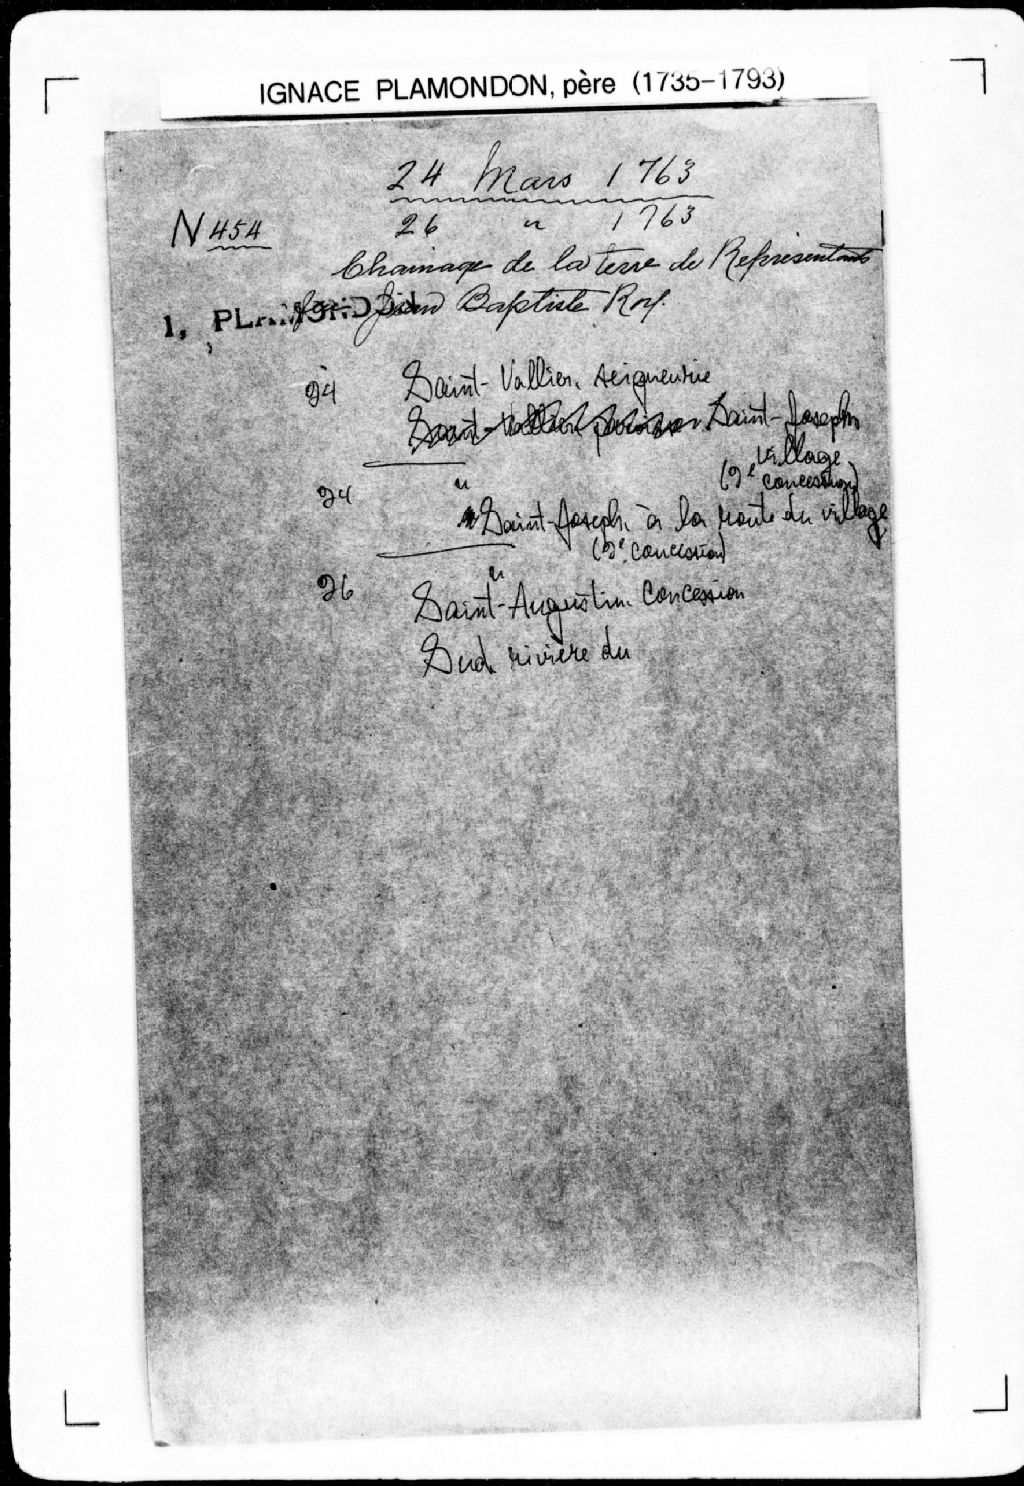 IGNACE PLAMONDON, père (1735-1793)
24 Mars 1763
N 454
26 " 1763
Chainage de la terre de Représentants
I, PLAMONDON
Jean Baptiste Roy.
24 Saint-Vallier, seigneurie
Saint-Vallier, paroisse Saint-Joseph
village
(2e concession)
24 "
Saint-Joseph, à la route du village
(2e concession)
26 "
Saint-Augustin, Concession
Sud, rivière du